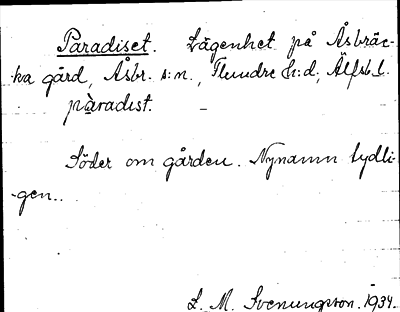 Paradiset. Lägenhet på Åsbräc-
ka gård, Åsbr. s:n., Flundre h:d, Älfsb. l.
pàradist.
Söder om gården. Nynamn tydli-
gen..
L. M. Svenungsson. 1934.